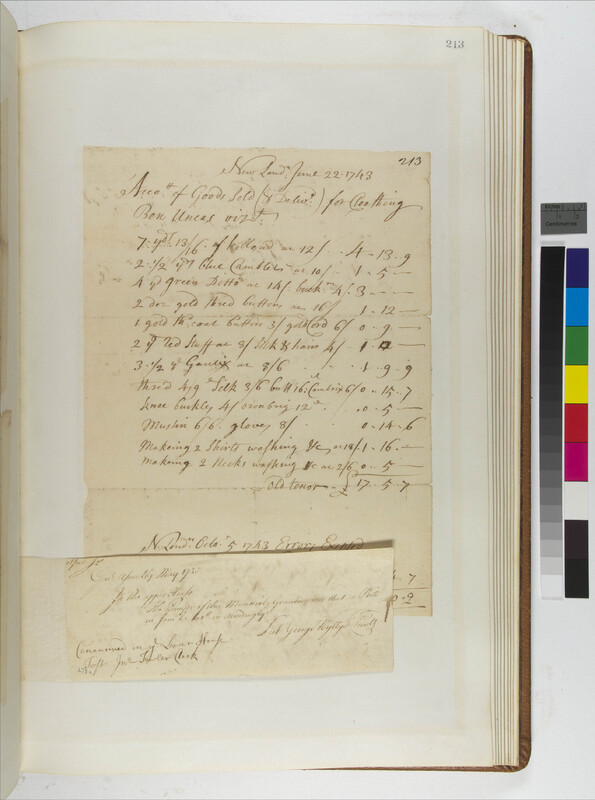 213
213
New Lond.ⁿ June 22 1743
Acco.ᵗᵗ of Goods Sold (& Deliv.ᵈ) for Cloathing
Ben Uncas viz.ᵗ
7 y.ᵈˢ 13/6 of holland at 12/ 4 - 13 - 9
2 1/2 y.ᵈˢ blue Camblet at 10/ 1 - 5 -
4 y.ᵈ green Ditto at 14/ buck.ᵐ 4/ 3 -
2 doz gold thred buttons at 16/ 1 - 12 -
1 gold th. coat buttons 3/ gold Cord 6/ 0 - 9 -
2 y.ᵈ red Stuff at 8/ Silk & hair 4/ 1 -
3 1/2 y.ᵈ Garlix at 8/6 1 - 9 - 9
thred 4/9 Silk 3/6 Cambrix 6/ 0 - 15 - 7
knee buckles 4/ 12.ᵈ 0 - 5 -
Muslin 6/6 gloves 8/ 0 - 14 - 6
Makeing 2 Shirts washing &c at 18/ 1 - 16 -
making 2 Necks washing &c at 2/6 0 - 5 -
old tenor 17 - 5 - 7
N Lond.ⁿ Octo.ʳ 5 1743 Errors Excepted
7
Assembly May
In the upper House
The Prayer of this Memorial Granted and that a Bill
in form be bro.ᵗ in Accordingly
Test George Wyllys Secret.ʸ
Concurred in y.ᵉ Lower House
Test Jn.º Fowler Clerk
Centimetres